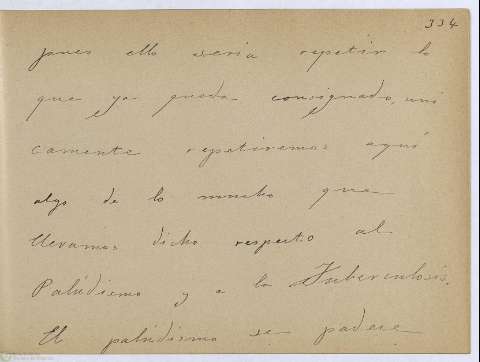 334
pues ello seria repetir lo
que ya queda consignado, uni
camente repetiremos aquí
algo de lo mucho que
llevamos dicho respecto al
Palúdismo y a la Tuberculosis.
El paludismo se padece